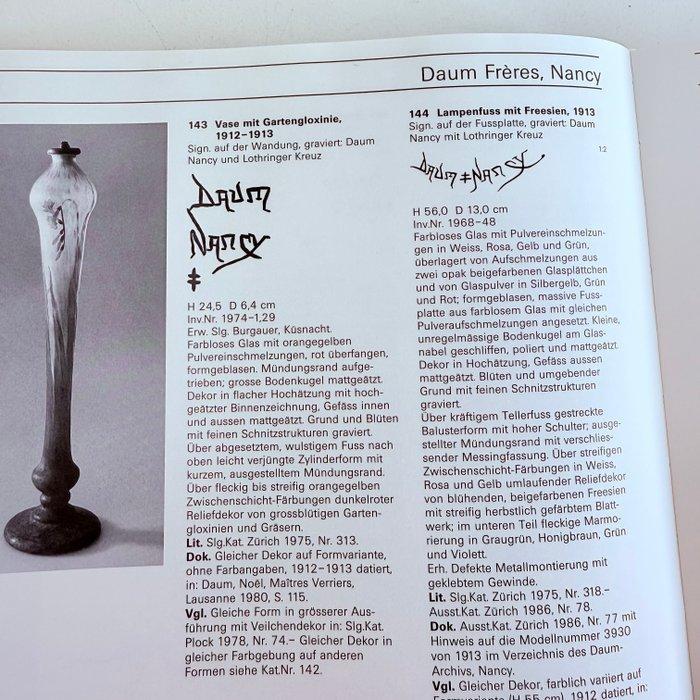 Daum Frères, Nancy
143 Vase mit Gartengloxinie,
1912–1913
Sign. auf der Wandung, graviert: Daum
Nancy und Lothringer Kreuz
DAUM
NANCY
‡
H 24,5 D 6,4 cm
Inv.Nr. 1974–1,29
Erw. Slg. Burgauer, Küsnacht.
Farbloses Glas mit orangegelben
Pulvereinschmelzungen, rot überfangen,
formgeblasen. Mündungsrand aufge-
trieben; grosse Bodenkugel mattgeätzt.
Dekor in flacher Hochätzung mit hoch-
geätzter Binnenzeichnung, Gefäss innen
und aussen mattgeätzt. Grund und Blüten
mit feinen Schnitzstrukturen graviert.
Über abgesetztem, wulstigem Fuss nach
oben leicht verjüngte Zylinderform mit
kurzem, ausgestelltem Mündungsrand.
Über fleckig bis streifig orangegelben
Zwischenschicht-Färbungen dunkelroter
Reliefdekor von grossblütigen Garten-
gloxinien und Gräsern.
Lit. Slg.Kat. Zürich 1975, Nr. 313.
Dok. Gleicher Dekor auf Formvariante,
ohne Farbangaben, 1912–1913 datiert,
in: Daum, Noël, Maîtres Verriers,
Lausanne 1980, S. 115.
Vgl. Gleiche Form in grösserer Aus-
führung mit Veilchendekor in: Slg.Kat.
Plock 1978, Nr. 74.– Gleicher Dekor in
gleicher Farbgebung auf anderen
Formen siehe Kat.Nr. 142.
144 Lampenfuss mit Freesien, 1913
Sign. auf der Fussplatte, graviert: Daum
Nancy mit Lothringer Kreuz
1:2
DAUM ‡ NANCY
H 56,0 D 13,0 cm
Inv.Nr. 1968–48
Farbloses Glas mit Pulvereinschmelzun-
gen in Weiss, Rosa, Gelb und Grün,
überlagert von Aufschmelzungen aus
zwei opak beigefarbenen Glasplättchen
und von Glaspulver in Silbergelb, Grün
und Rot; formgeblasen, massive Fuss-
platte aus farblosem Glas mit gleichen
Pulveraufschmelzungen angesetzt. Kleine,
unregelmässige Bodenkugel am Glas-
nabel geschliffen, poliert und mattgeätzt.
Dekor in Hochätzung, Gefäss aussen
mattgeätzt. Blüten und umgebender
Grund mit feinen Schnitzstrukturen
graviert.
Über kräftigem Tellerfuss gestreckte
Balusterform mit hoher Schulter; ausge-
stellter Mündungsrand mit verschlies-
sender Messingfassung. Über streifigen
Zwischenschicht-Färbungen in Weiss,
Rosa und Gelb umlaufender Reliefdekor
von blühenden, beigefarbenen Freesien
mit streifig herbstlich gefärbtem Blatt-
werk; im unteren Teil fleckige Marmo-
rierung in Graugrün, Honigbraun, Grün
und Violett.
Erh. Defekte Metallmontierung mit
geklebtem Gewinde.
Lit. Slg.Kat. Zürich 1975, Nr. 318.–
Ausst.Kat. Zürich 1986, Nr. 78.
Dok. Ausst.Kat. Zürich 1986, Nr. 77 mit
Hinweis auf die Modellnummer 3930
von 1913 im Verzeichnis des Daum-
Archivs, Nancy.
Vgl. Gleicher Dekor, farblich variiert auf
Formvariante (H 55 cm), 1912 datiert, in: